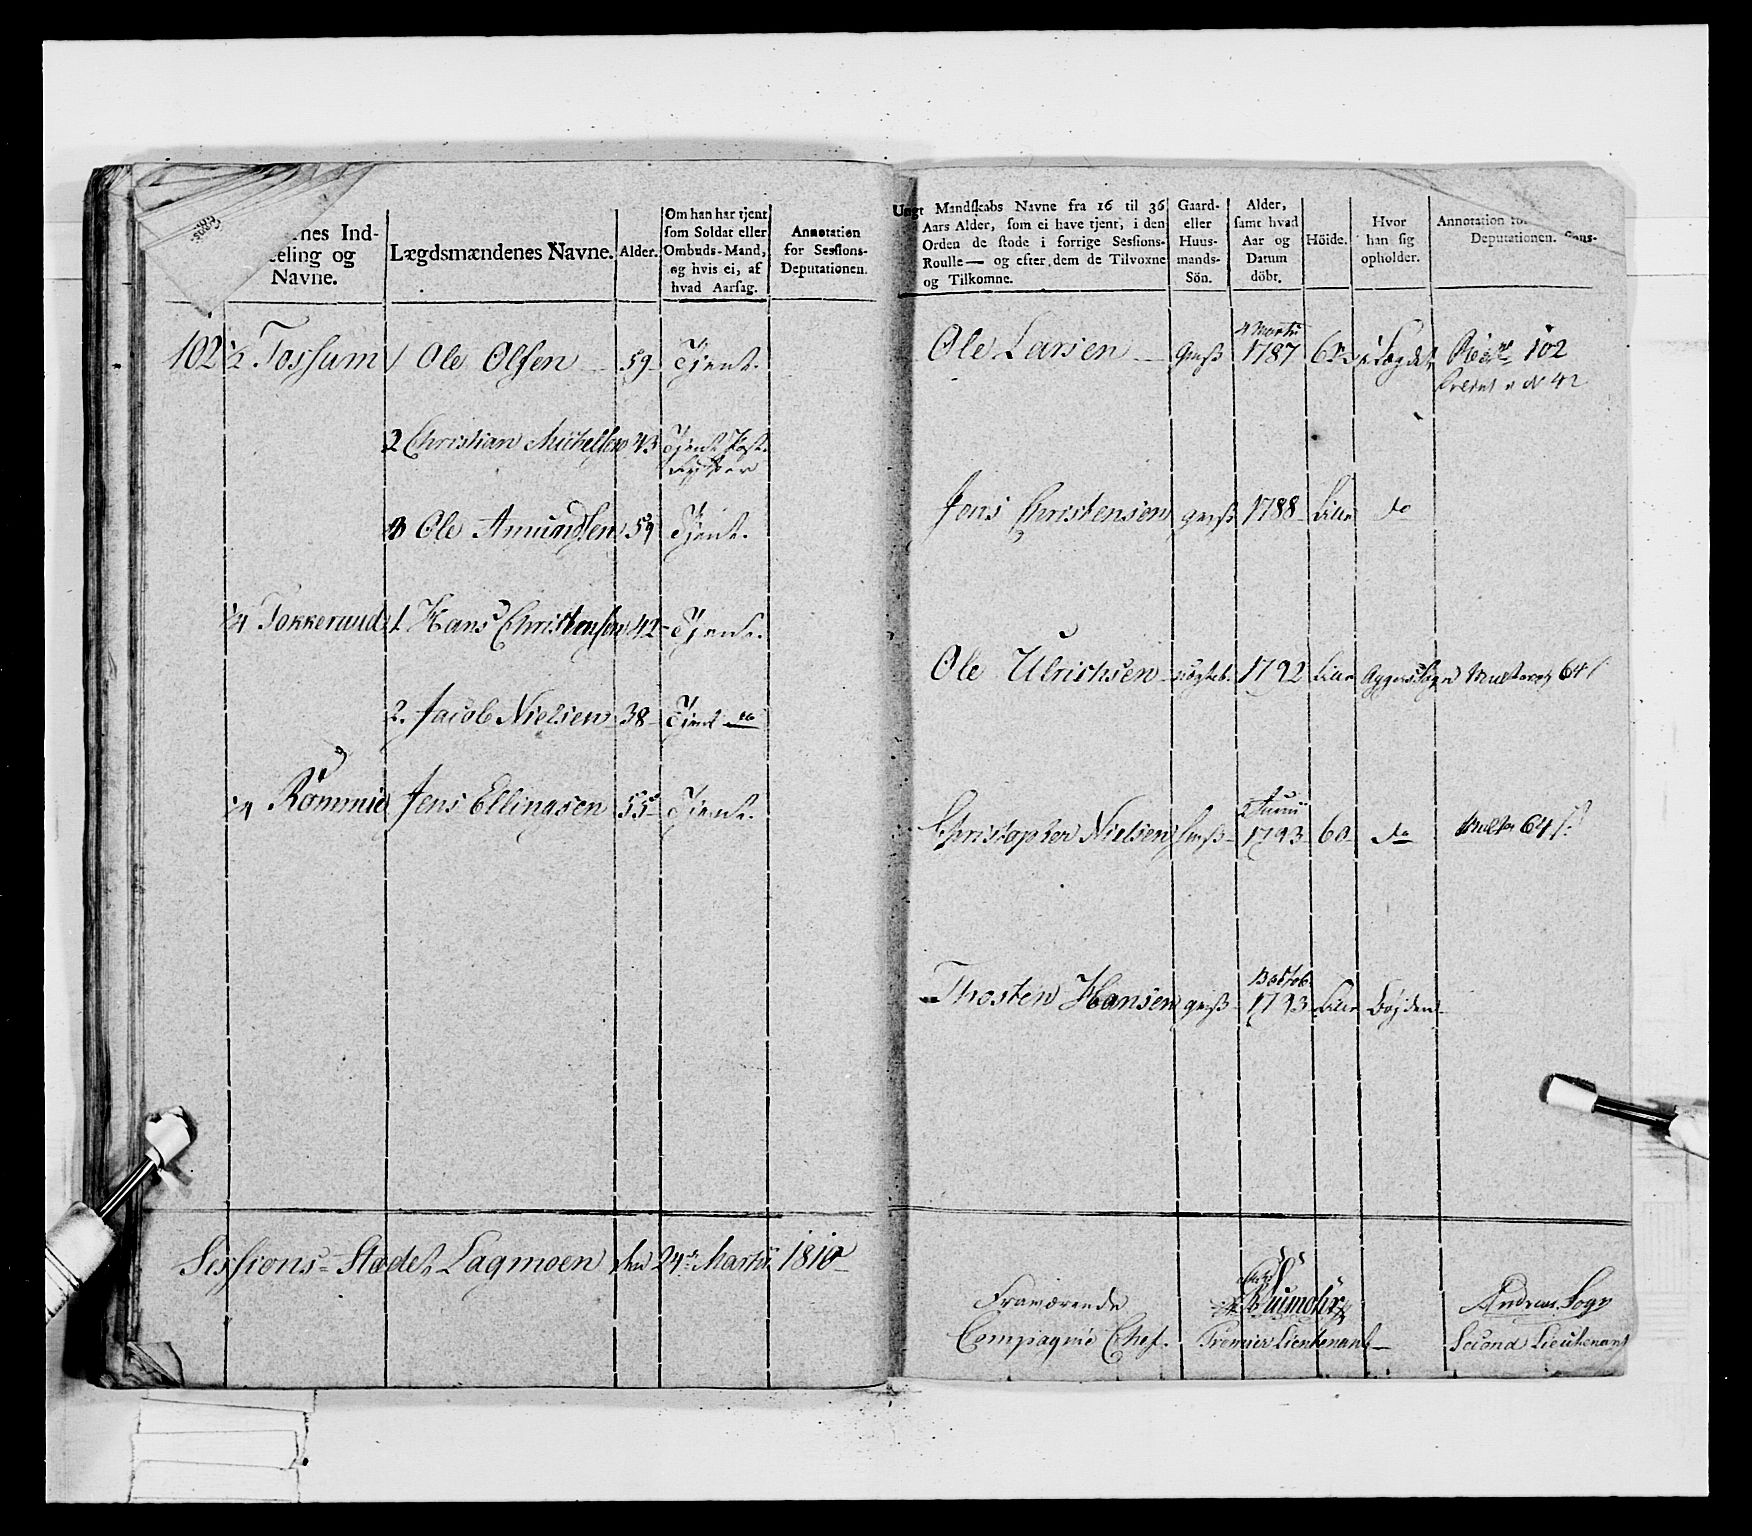 nes Ind-
eling og
Navne.
Lægdsmændenes Navne.
Alder.
Om han har tjent
som Soldat eller
Ombuds-Mand,
og hvis ei, af
hvad Aarsag.
Annotation
for Sessions-
Deputationen.
102 ½ Tossum 1 Ole Olsen 59 Tjent.
2 Christian Michelsen 43 Tjent
3 Ole Amundsen 59 Tjent.
¼ Tokkerud 1. Hans Christensen 42 Tjent.
2. Jacob Nielsen 38 Tjent do
¼ Rommie Jens Ellingsen 55 Tjent.
Sessions-Stædet Lagmoen den 24de Martii 1810
Ungt Mandskabs Navne fra 16 til 36
Aars Alder, som ei have tjent, i den
Orden de stode i forrige Sessions-
Roulle— og efter dem de Tilvoxne
og Tilkomne.
Gaard-
eller
Huus-
mands-
Sön.
Alder,
samt hvad
Aar og
Datum
döbt.
Höide.
Hvor
han sig
opholder.
Annotation for
Deputationen.
Sons-
4 Martii
Ole Larsen 1787 i Lægdet 102
No 42
Jens Christensen 1788 Lille do
Ole Ulrichsen 1792 Lille Aggers Sogn 64
2 Junii
Christopher Nielsen 1793 60 do 64
Thosten Hansen 1793 Lille Bøjden
Rumohr
Andreas Fogs
Fraværende
Compagnie Chef. Premier Lieutenant Second Lieutenant